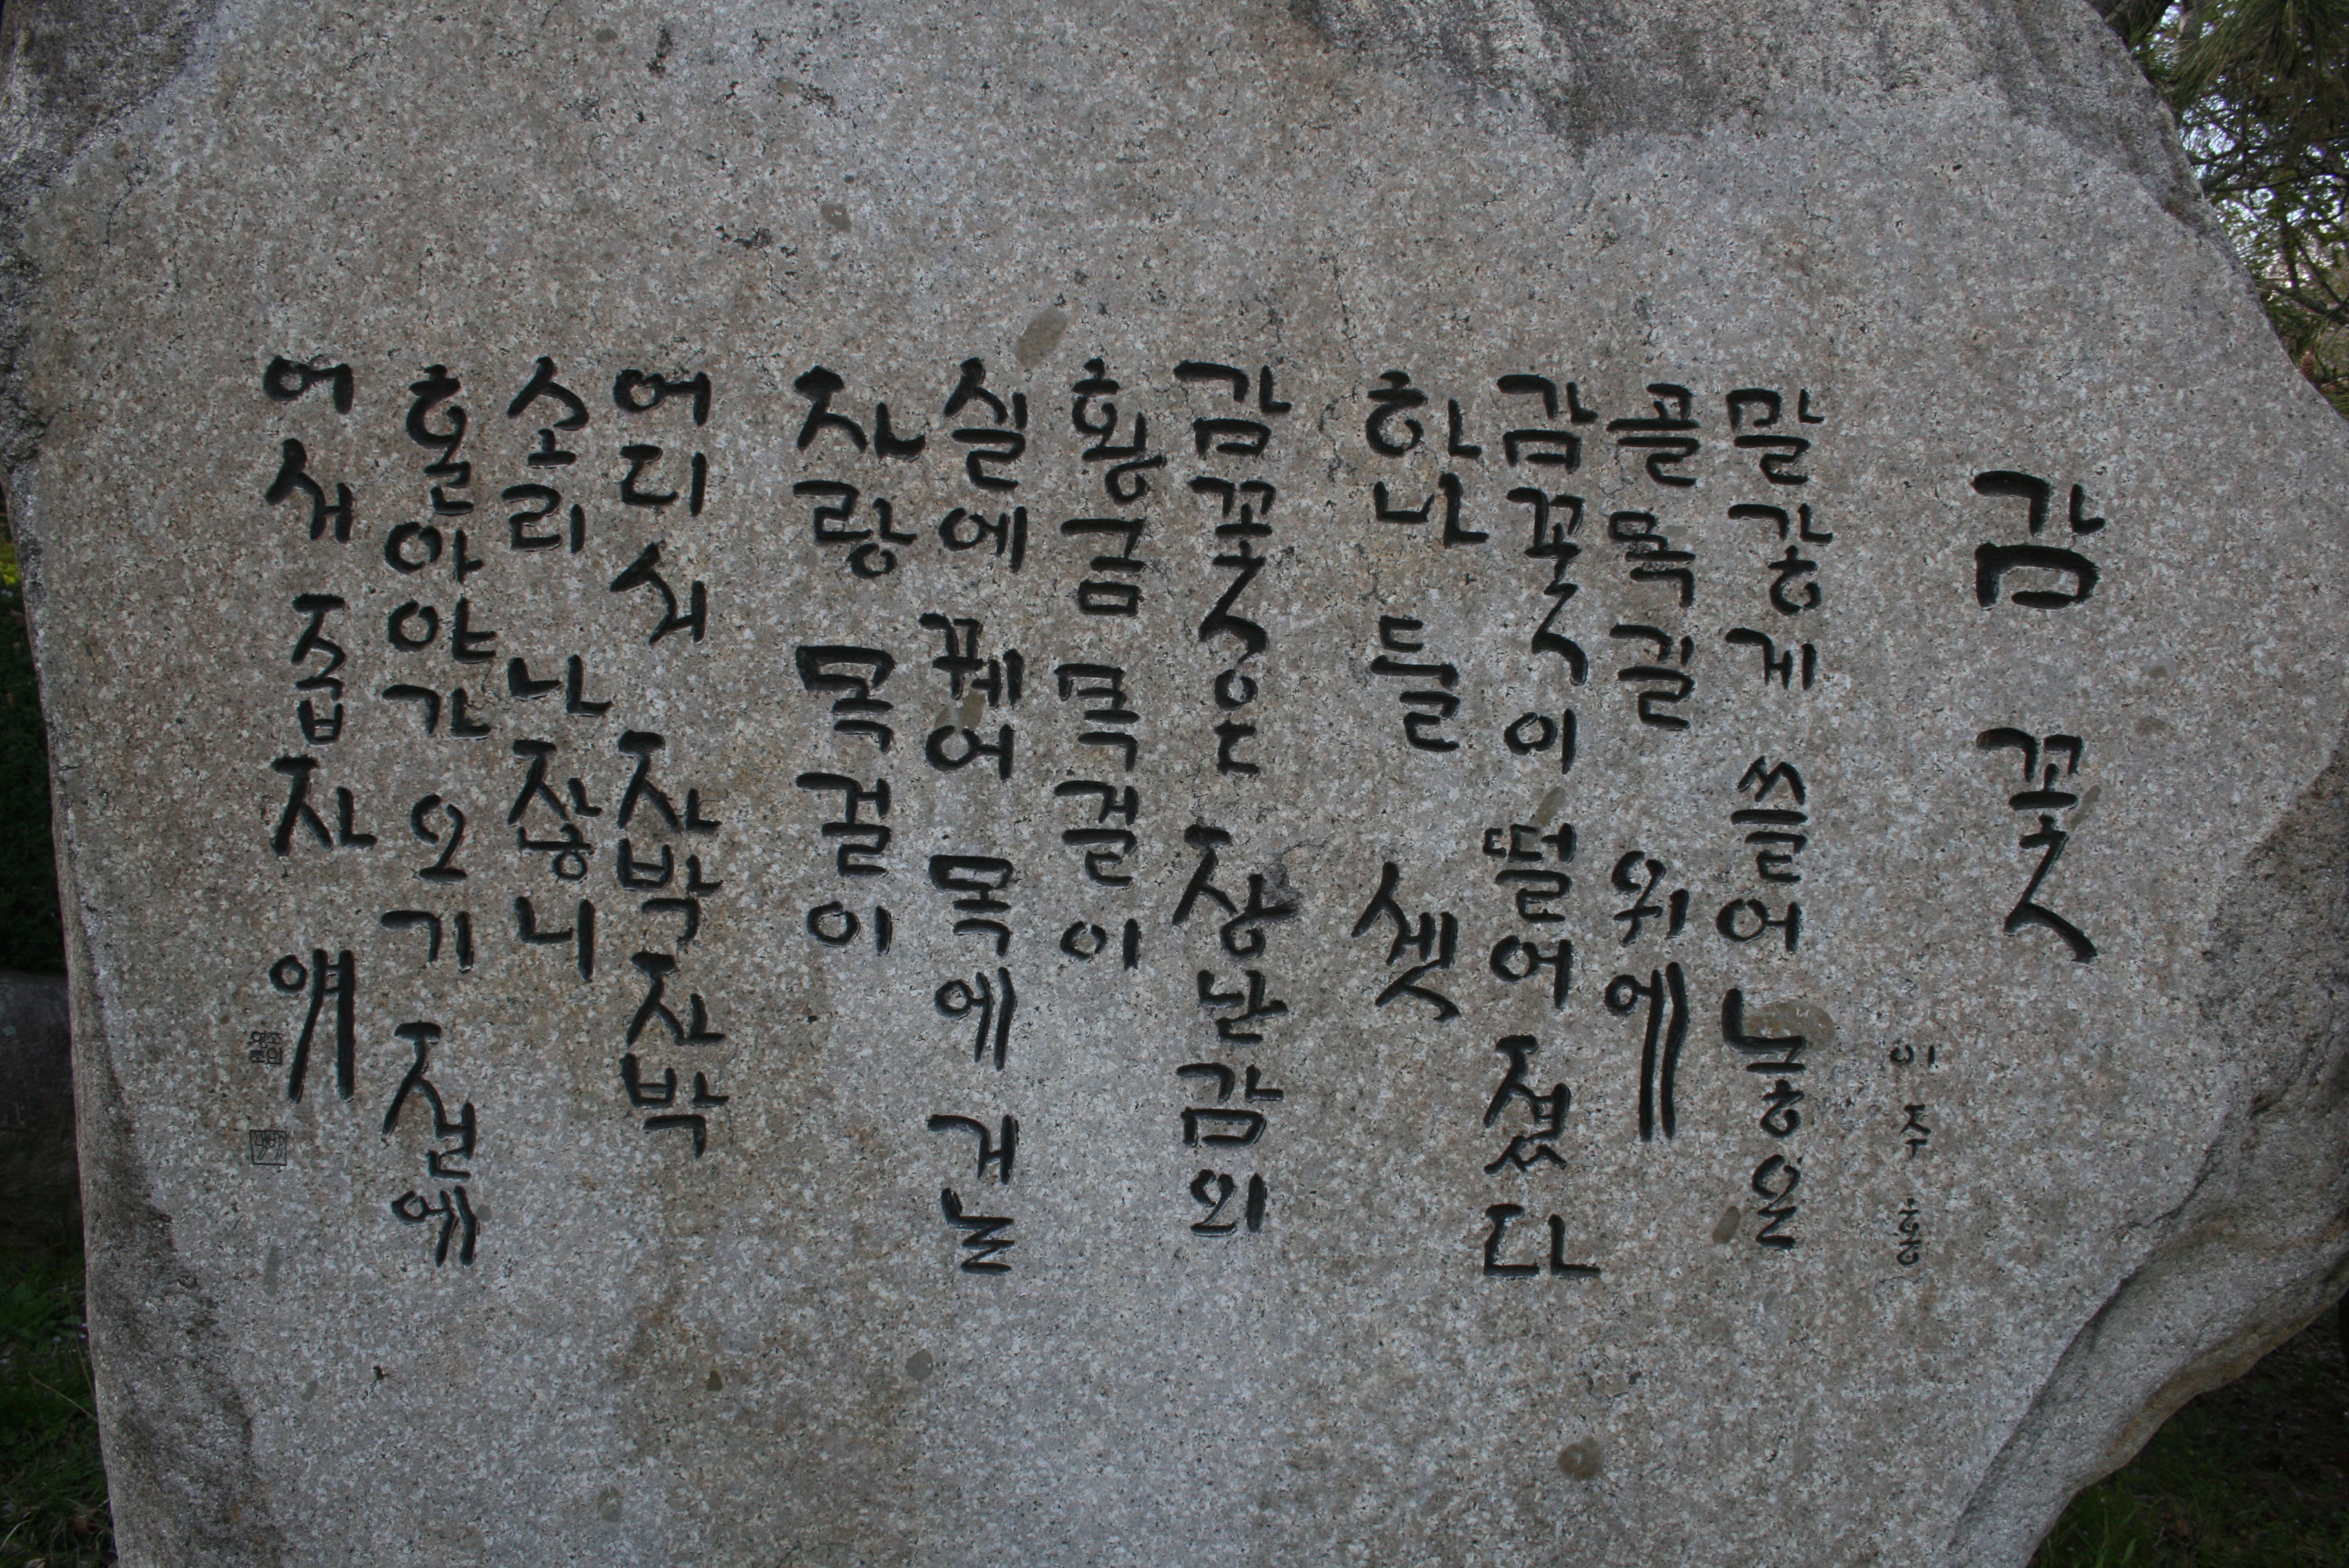 감 꽃
이 주 홍
말갛게 쓸어 놓은
골목길 위에
감꽃이 떨어졌다
하나 둘 셋
감꽃은 장난감의
황금 목걸이
실에 꿰어 목에 거는
자랑 목걸이
어디서 자박자박
소리 나잖니
훈아야가 오기 전에
어서 줍자 얘